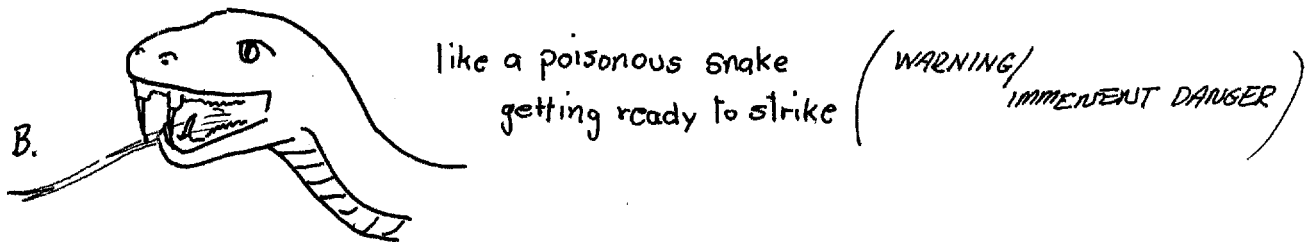 B.
like a poisonous snake
getting ready to strike
(WARNING/
IMMENENT DANGER)